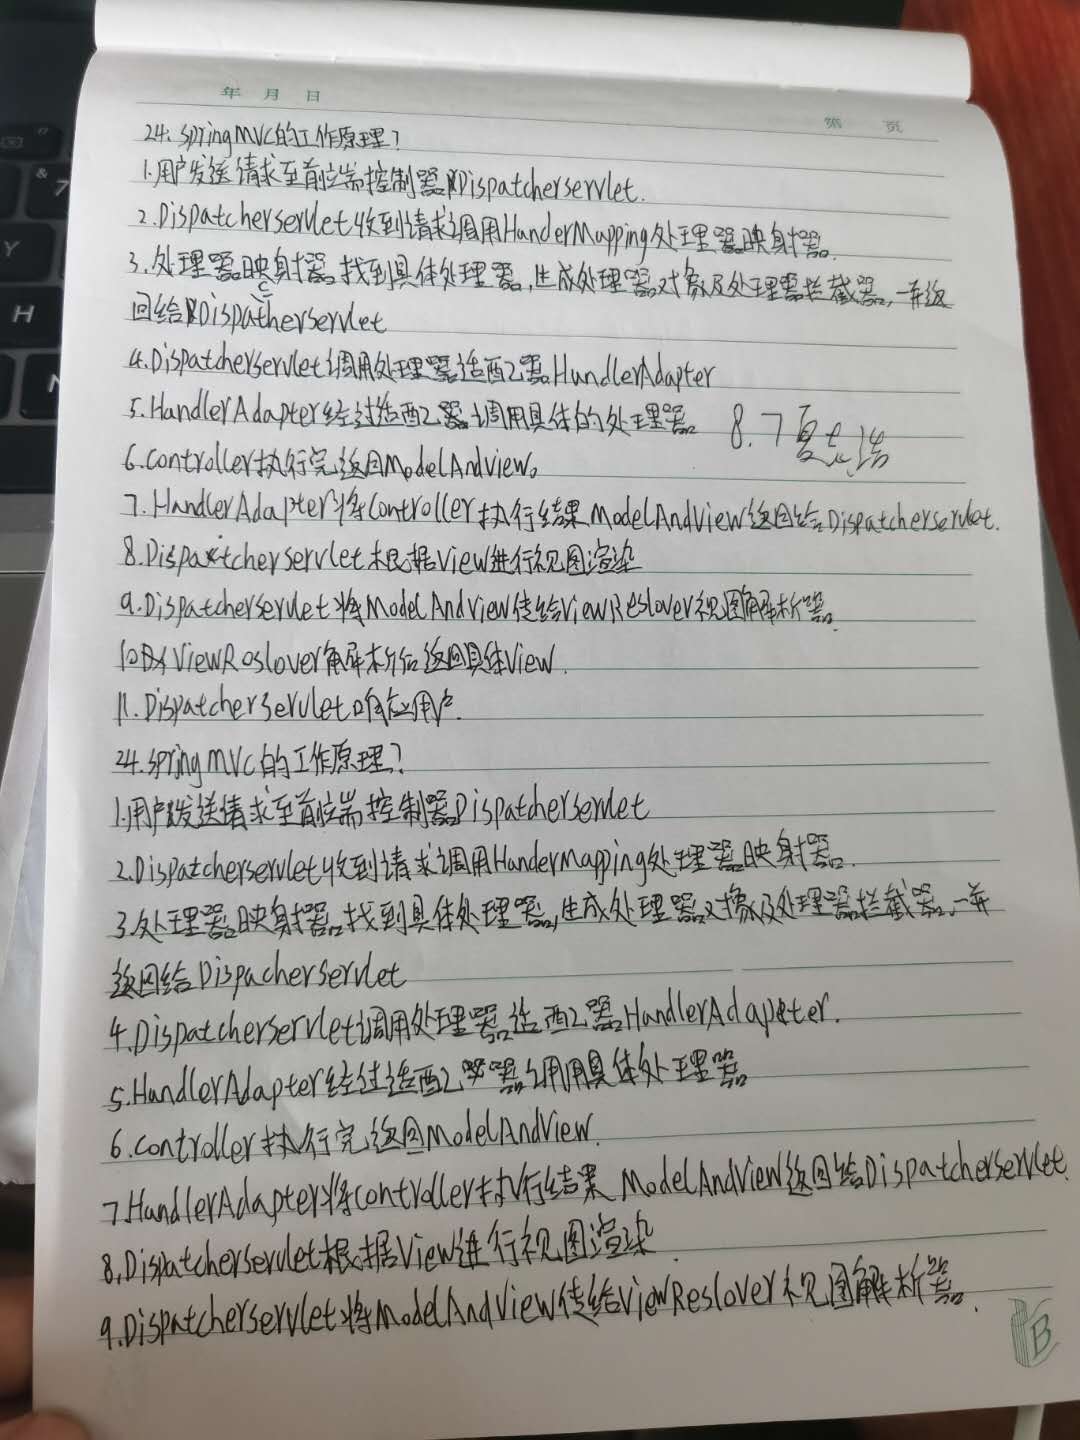 年 月 日
第 页
24. springMVC的工作原理？
1.用户发送请求至前端控制器Dispatcherservlet.
2.DispatcherServlet收到请求调用HanderMapping处理器映射器.
3.处理器映射器找到具体处理器,生成处理器对象及处理器拦截器,一并返
回给DispatcherServlet
4.DispatcherServlet调用处理器适配器HandlerAdapter
5.HandlerAdapter经过适配器调用具体的处理器
8.7
6.Controller执行完返回ModelAndView。
7.HandlerAdapter将Controller执行结果ModelAndView返回给DispatcherServlet.
8.DispatcherServlet根据View进行视图渲染
9.DispatcherServlet将ModelAndView传给ViewReslover视图解析器.
10.ViewRoslover解析后返回具体View.
11.DispatcherServlet响应用户.
24.springMVC的工作原理？
1.用户发送请求至前端控制器DispatcherServlet
2.DispatcherServlet收到请求调用HanderMapping处理器映射器.
3.处理器映射器找到具体处理器,生成处理器对象及处理器拦截器,一并
返回给DispacherServlet
4.DispatcherServlet调用处理器适配器HandlerAdapeter.
5.HandlerAdapter经过适配器调用具体处理器
6.Controller执行完返回ModelAndView.
7.HandlerAdapter将Controller执行结果ModelAndView返回给DispatcherServlet.
8.DispatcherServlet根据View进行视图渲染.
9.DispatcherServlet将ModelAndView传给ViewReslover视图解析器.
B